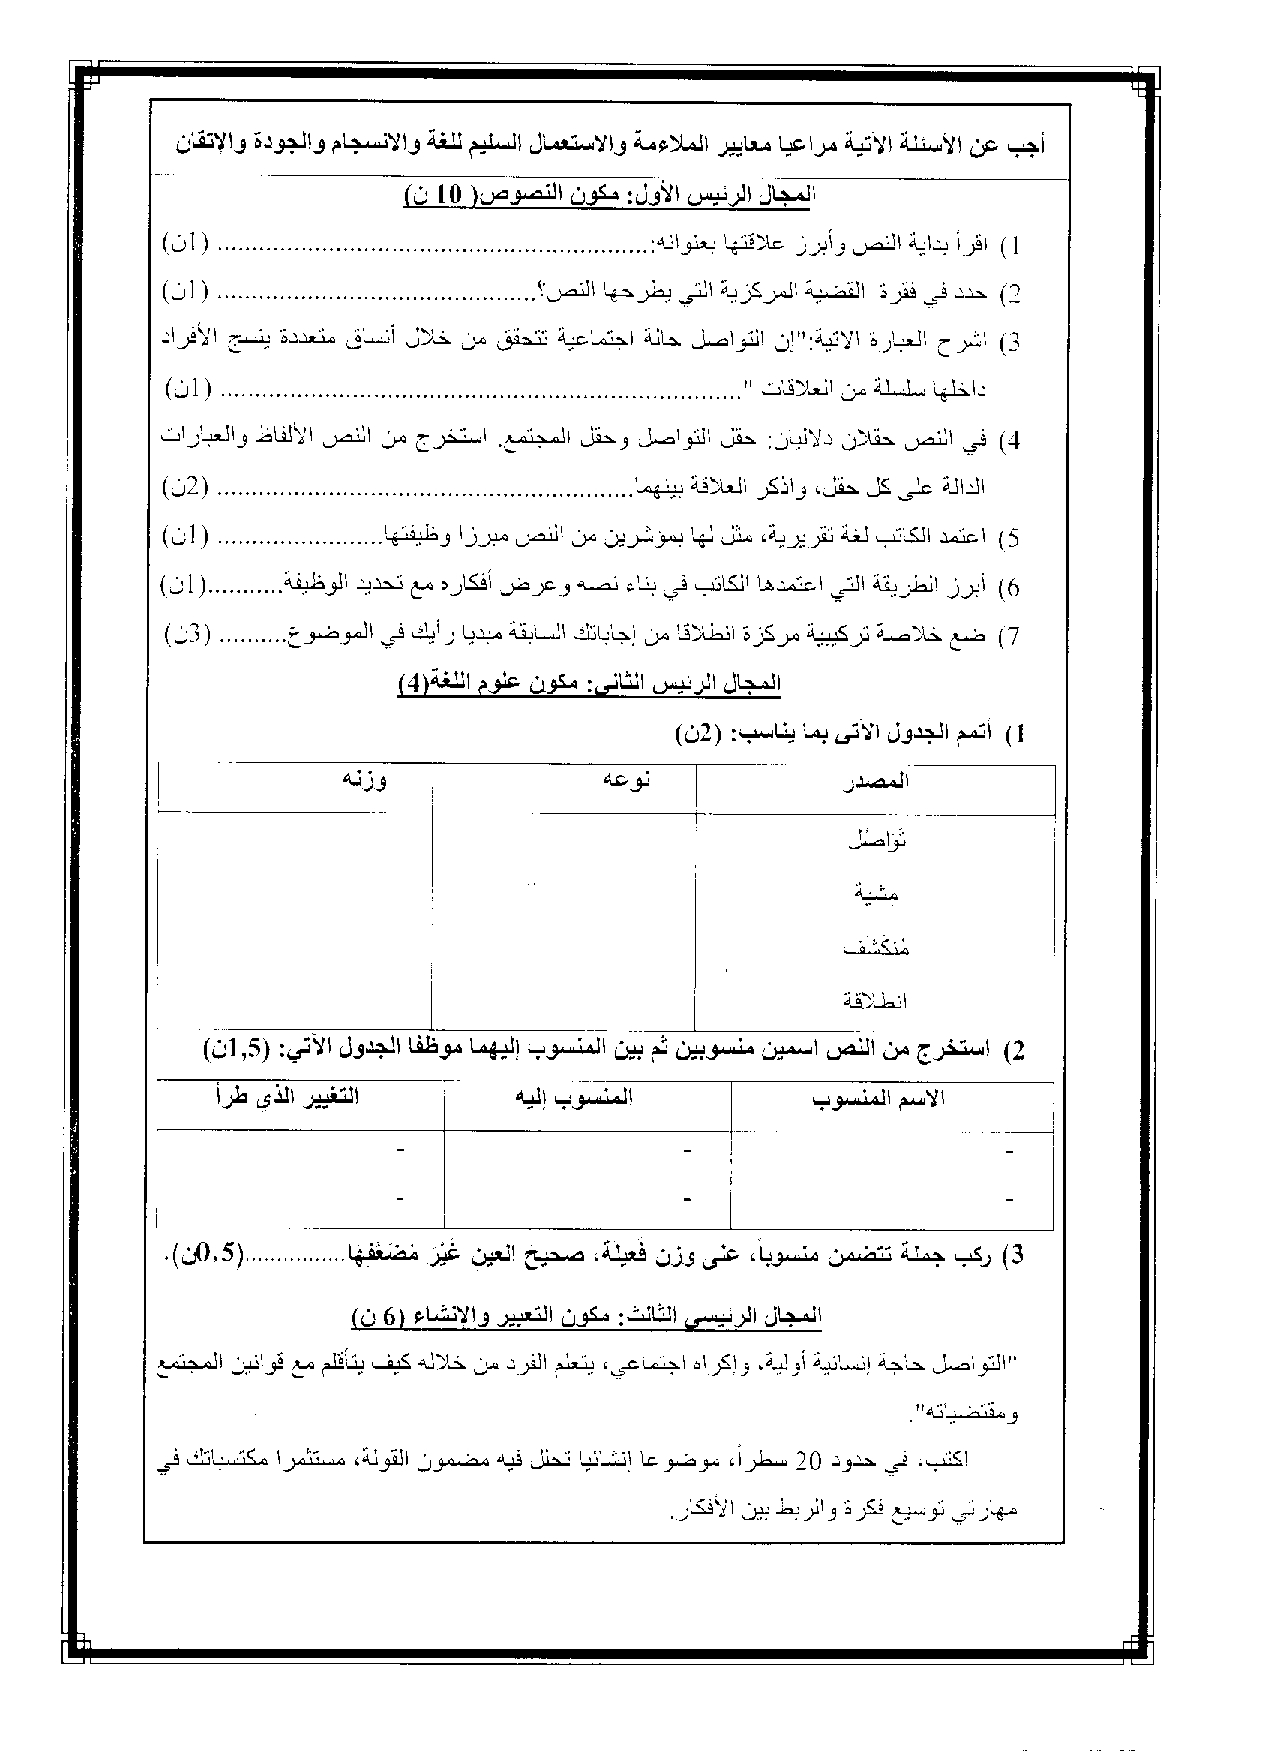 أجب عن الأسئلة الآتية مراعيا معايير الملاءمة والاستعمال السليم للغة والانسجام والجودة والإتقان
المجال الرئيس الأول: مكون النصوص( 10 ن)
1) اقرأ بداية النص وأبرز علاقتها بعنوانه:................................................................ (1ن)
2) حدد في فقرة القضية المركزية التي يطرحها النص؟............................................... (1ن)
3) اشرح العبارة الآتية:"إن التواصل حالة اجتماعية تتحقق من خلال أنساق متعددة ينسج الأفراد
داخلها سلسلة من العلاقات " ............................................................................ (1ن)
4) في النص حقلان دلاليان: حقل التواصل وحقل المجتمع. استخرج من النص الألفاظ والعبارات
الدالة على كل حقل، واذكر العلاقة بينهما............................................................. (2ن)
5) اعتمد الكاتب لغة تقريرية، مثل لها بمؤشرين من النص مبرزا وظيفتها........................ (1ن)
6) أبرز الطريقة التي اعتمدها الكاتب في بناء نصه وعرض أفكاره مع تحديد الوظيفة...........(1ن)
7) ضع خلاصة تركيبية مركزة انطلاقا من إجاباتك السابقة مبديا رأيك في الموضوع.......... (3ن)
المجال الرئيس الثاني: مكون علوم اللغة(4)
1) أتمم الجدول الآتي بما يناسب: (2ن)
المصدر نوعه وزنه
تَوَاصُل
مشية
مُنكَشَف
انطلاقة
2) استخرج من النص اسمين منسوبين ثم بين المنسوب إليهما موظفا الجدول الآتي: (1,5ن)
الاسم المنسوب المنسوب إليه التغيير الذي طرأ
- - -
- - -
3) ركب جملة تتضمن منسوباً، على وزن فَعِيلة، صحيحَ العين غَيْرَ مُضَعَّفِهَا...............(0.5ن).
المجال الرئيسي الثالث: مكون التعبير والإنشاء (6 ن)
"التواصل حاجة إنسانية أولية، وإكراه اجتماعي، يتعلم الفرد من خلاله كيف يتأقلم مع قوانين المجتمع
ومقتضياته".
اكتب، في حدود 20 سطراً، موضوعا إنشائيا تحلل فيه مضمون القولة، مستثمرا مكتسباتك في
مهارتي توسيع فكرة والربط بين الأفكار.